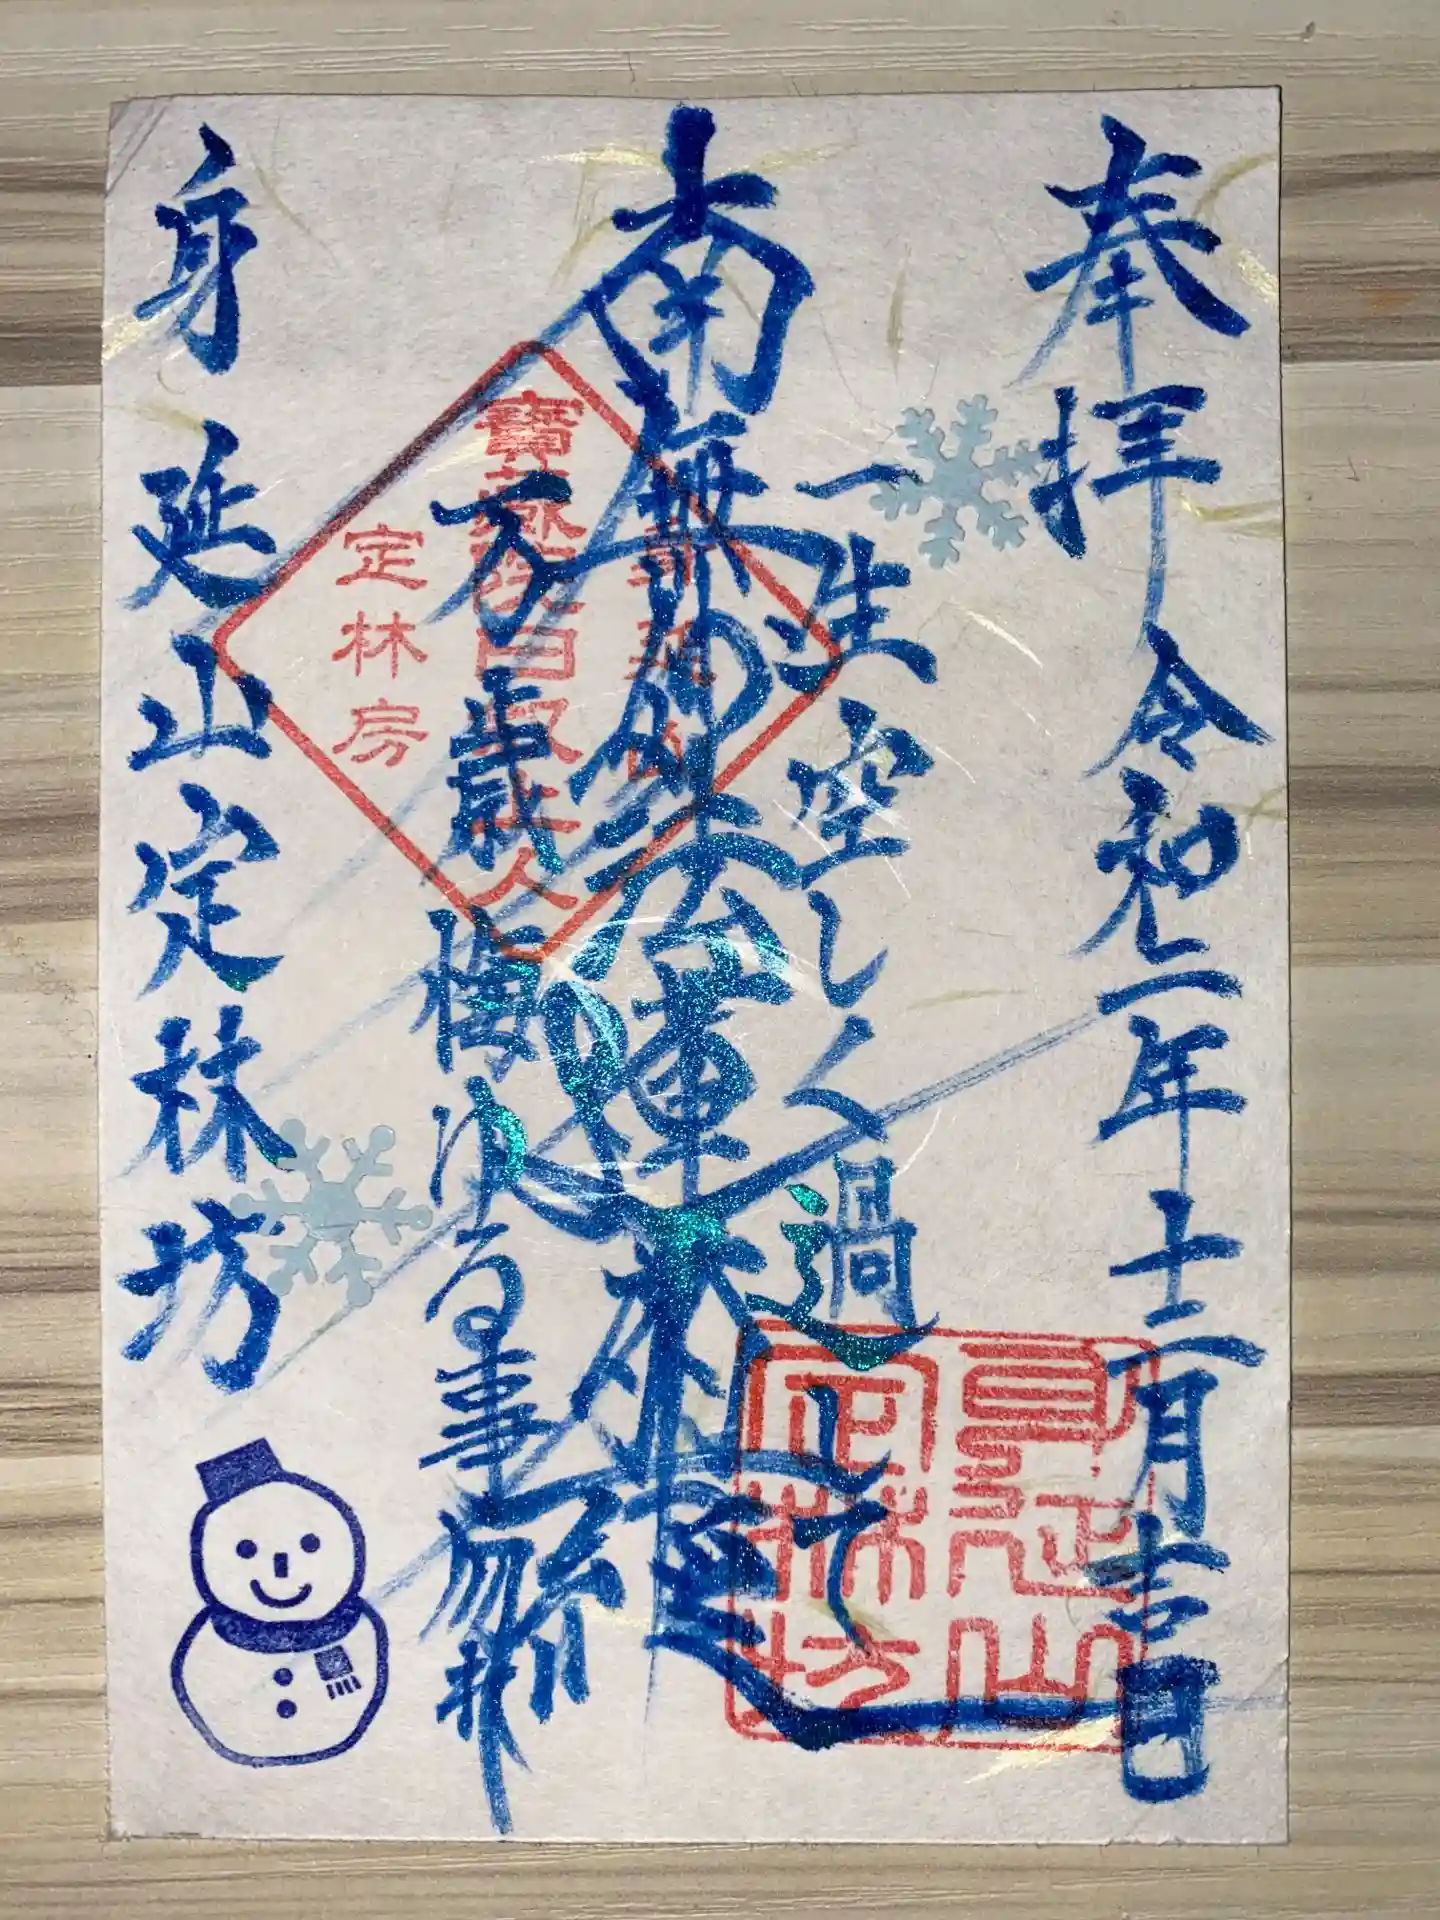 奉拝 令和二年十二月吉日
一生空しく過して
南無妙法蓮華経
万歳悔ゆる事勿れ
身延山定林坊
身延山
寶蔵院日叙上人
定林房
身延山
定林坊